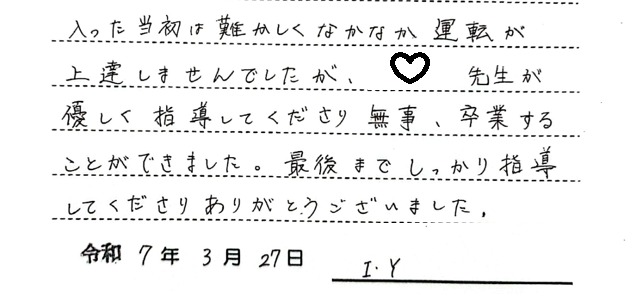 入った当初は難かしくなかなか運転が
上達しませんでしたが、♡先生が
優しく指導してくださり無事、卒業する
ことができました。最後までしっかり指導
してくださりありがとうございました。
令和 7年 3月 27日 I.Y